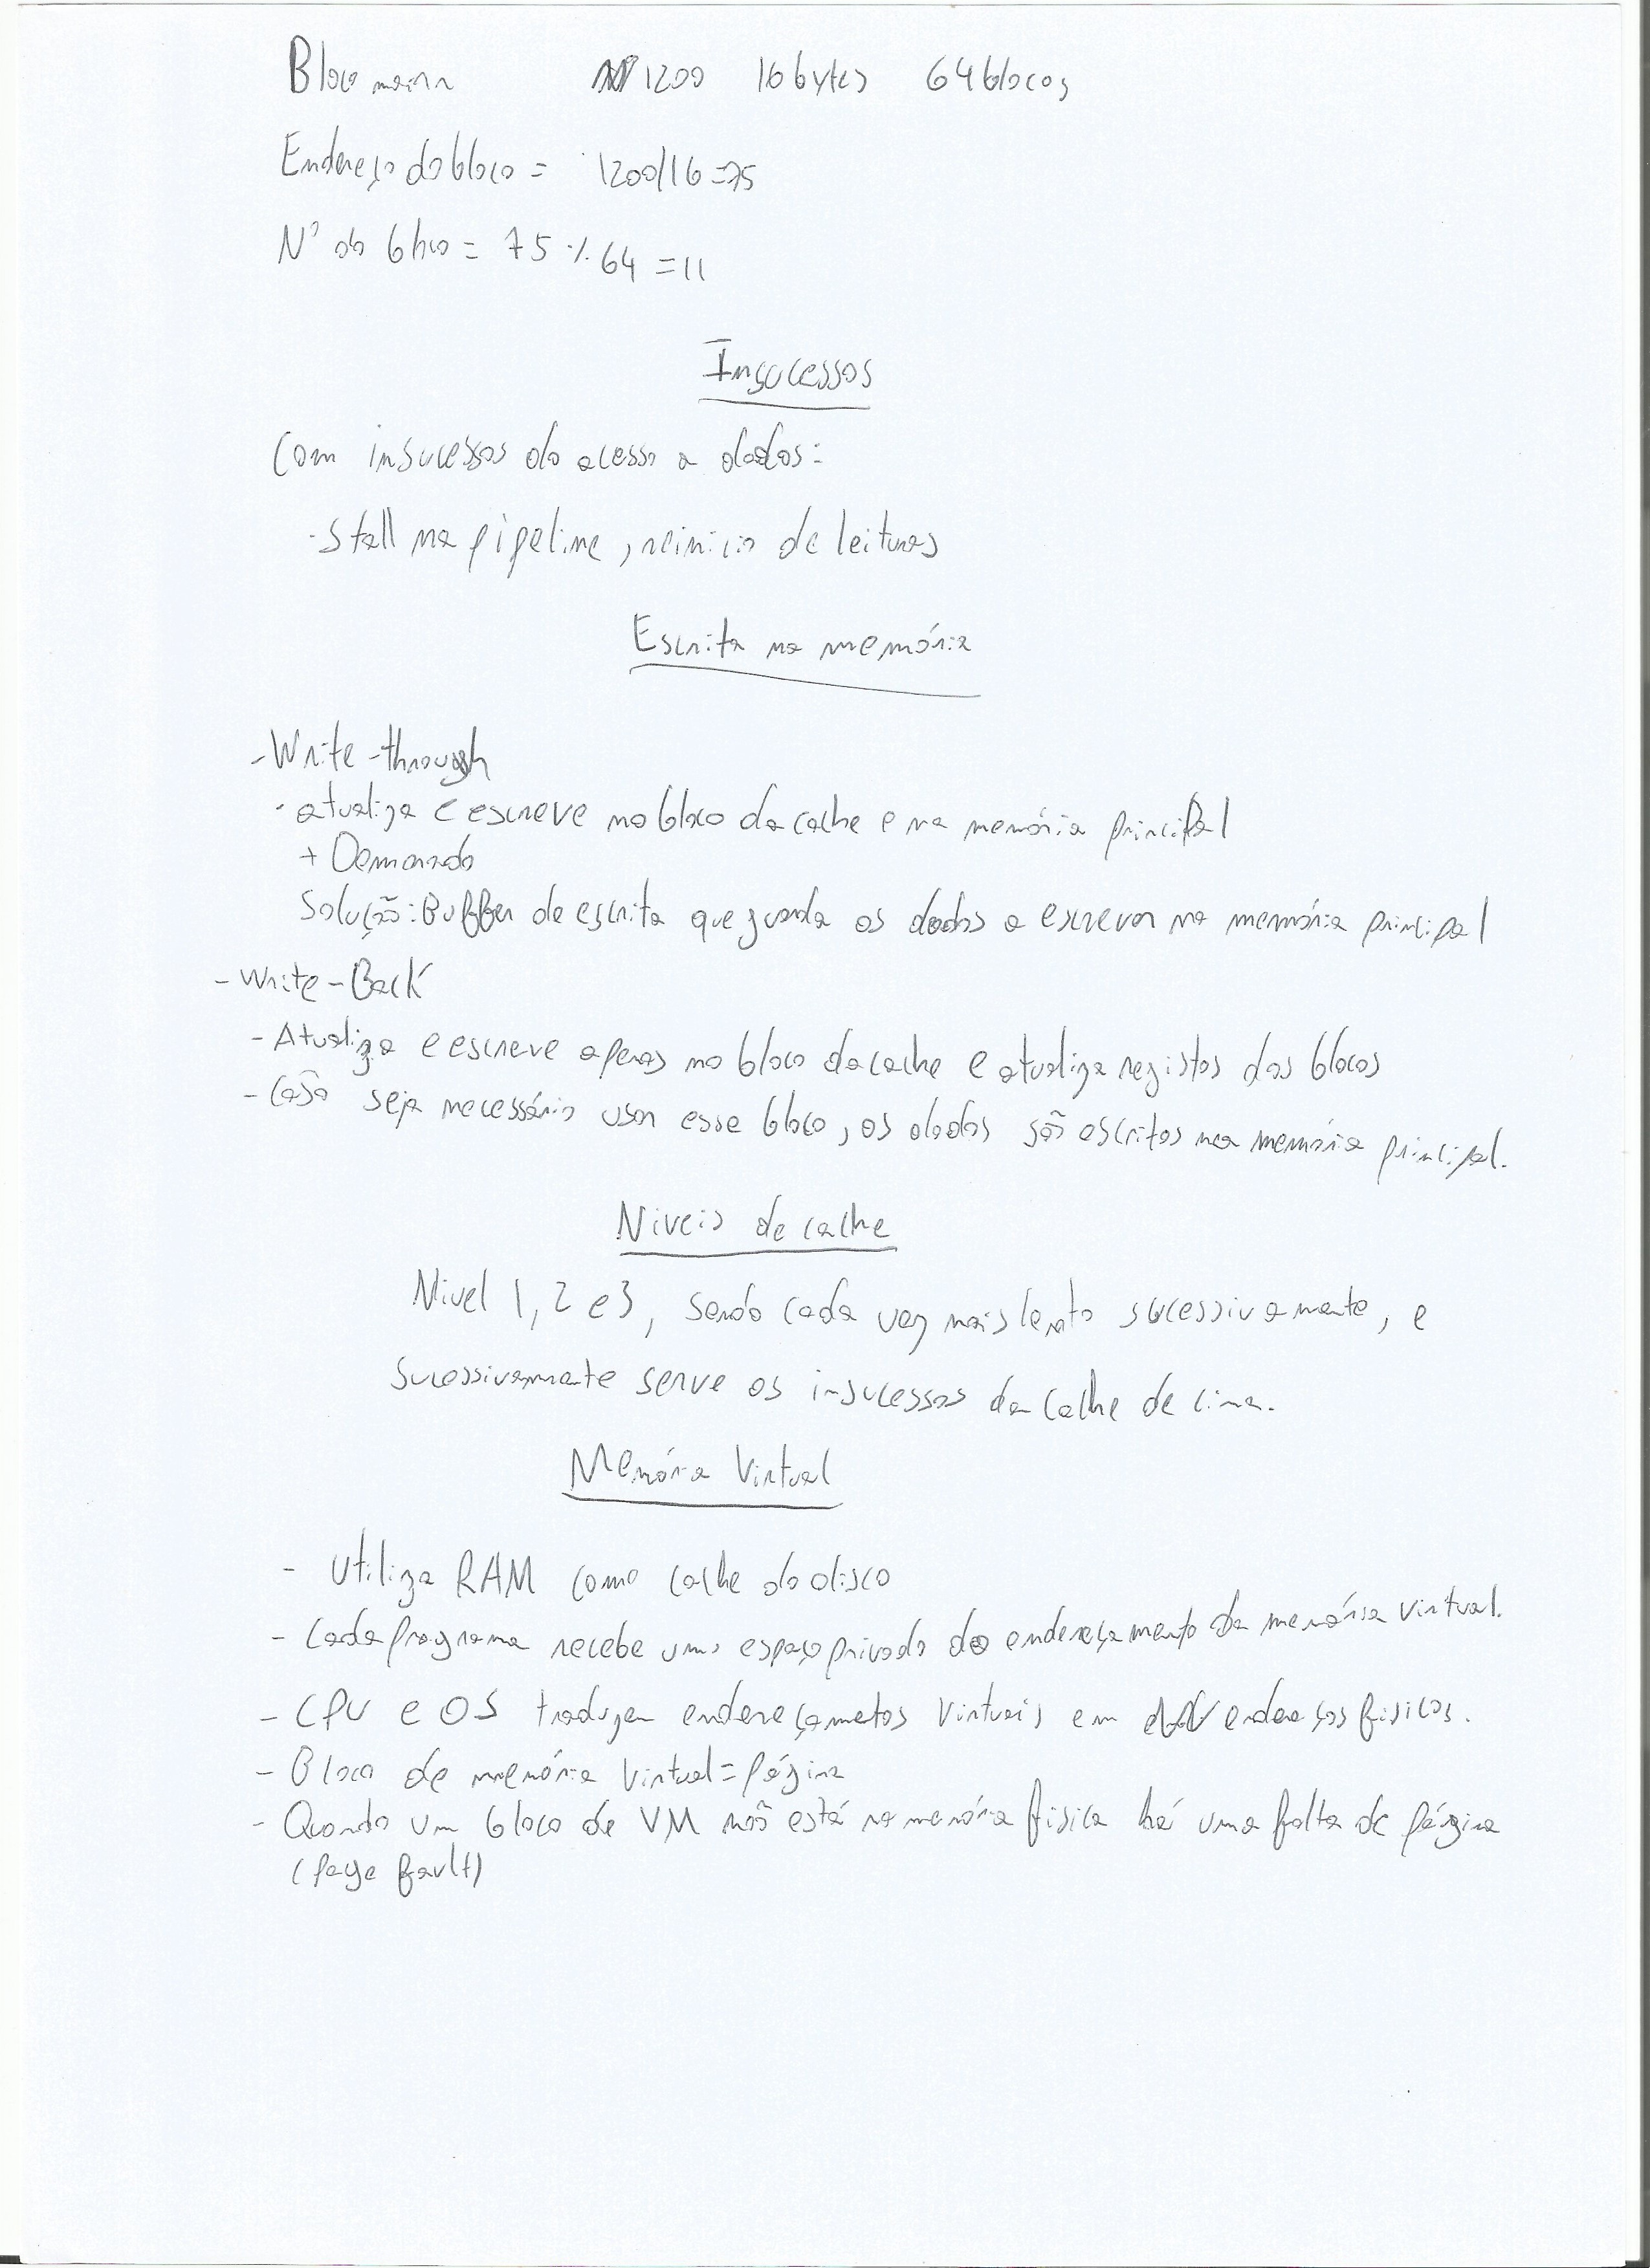 Bloco maior 1200 16 bytes 64 blocos
Endereço do bloco = 1200/16=75
Nº do bloco = 75 % 64 = 11
Insucessos
Com insucessos do acesso a dados:
- Stall na pipeline, reinicio de leituras
Escrita na memória
- Write-through
- atualiza e escreve no bloco da cache e na memória principal
+ Demorado
Solução: Buffer de escrita que guarda os dados a escrever na memória principal
- Write-Back
- Atualiza e escreve apenas no bloco da cache e atualiza registos dos blocos
- Caso seja necessário usar esse bloco, os dados são escritos na memória principal.
Niveis de cache
Nivel 1, 2 e 3, sendo cada vez mais lento sucessivamente, e
sucessivamente serve os insucessos da cache de cima.
Memória Virtual
- Utiliza RAM como cache do disco
- Cada programa recebe um espaço privado do endereçamento da memória virtual.
- CPU e OS traduzem endereçamentos virtuais em endereços fisicos.
- Bloco de memória virtual = Página
- Quando um bloco de VM não está na memória fisica há uma falta de página
(page fault)